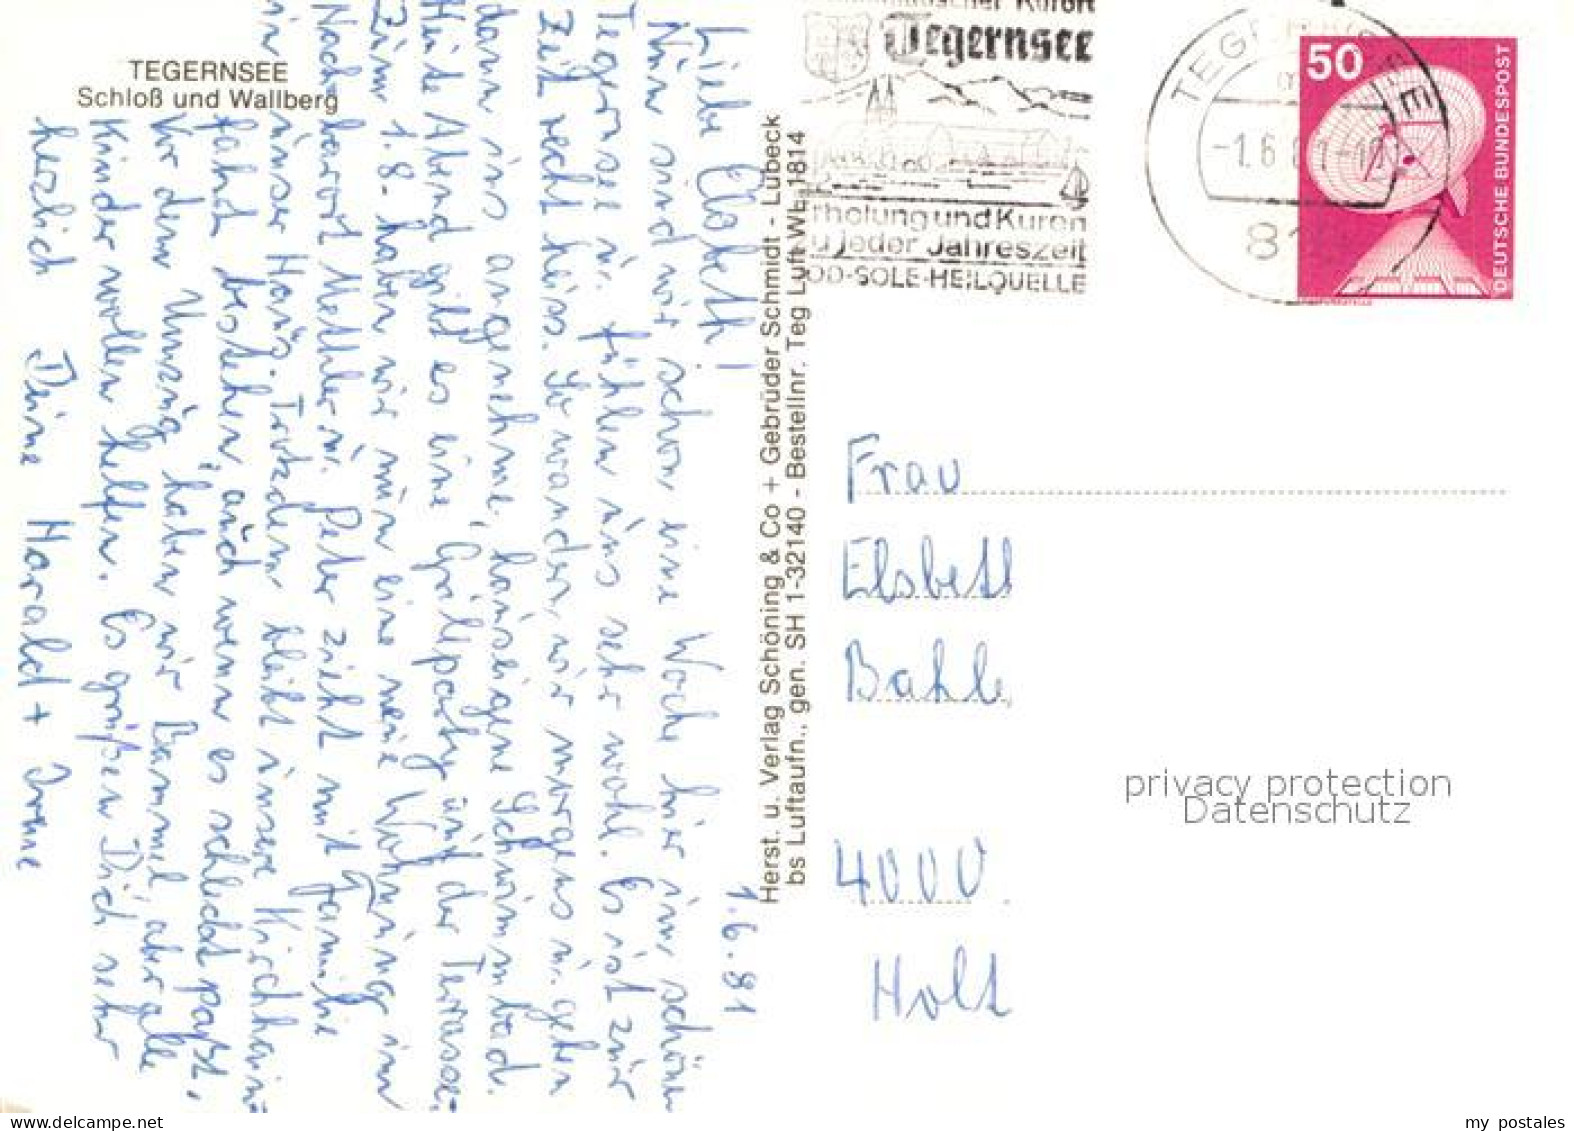 TEGERNSEE
Schloß und Wallberg
1.6.81
Liebe Elsbeth!
Nun sind wir schon eine Woche hier im schönen
Tegernsee u. fühlen uns sehr wohl. Es ist zur
Zeit recht heiss. So wandern wir morgens u. gehen
dann ins angenehme, hauseigene Schwimmbad.
Heute Abend gibt es eine Grillparty auf der Terasse.
Zum 1.8. haben wir nun eine neue Wohnung im
Nachbarort Mettler u. Peter zieht mit Familie
in unser Haus. Trotzdem bleibt unsere Kirchhain-
fahrt bestehen, auch wenn es schlecht paßt.
Vor dem Umzug haben wir Bammel, aber alle
Kinder wollen helfen. Es grüßen Dich sehr
herzlich Deine Harald + Irene
Herst. u. Verlag Schöning & Co + Gebrüder Schmidt - Lübeck
bs Luftaufn., gen. SH 1-32140 - Bestellnr. Teg Luft Wb 1814
Kurort
Tegernsee
rholung und Kuren
u jeder Jahreszeit
OD-SOLE-HEILQUELLE
TEGERNSEE
-1.6.81-12
50
DEUTSCHE BUNDESPOST
Frau
Elsbeth
Bahle
4000
Holt
privacy protection
Datenschutz
www.delcampe.net
my postales